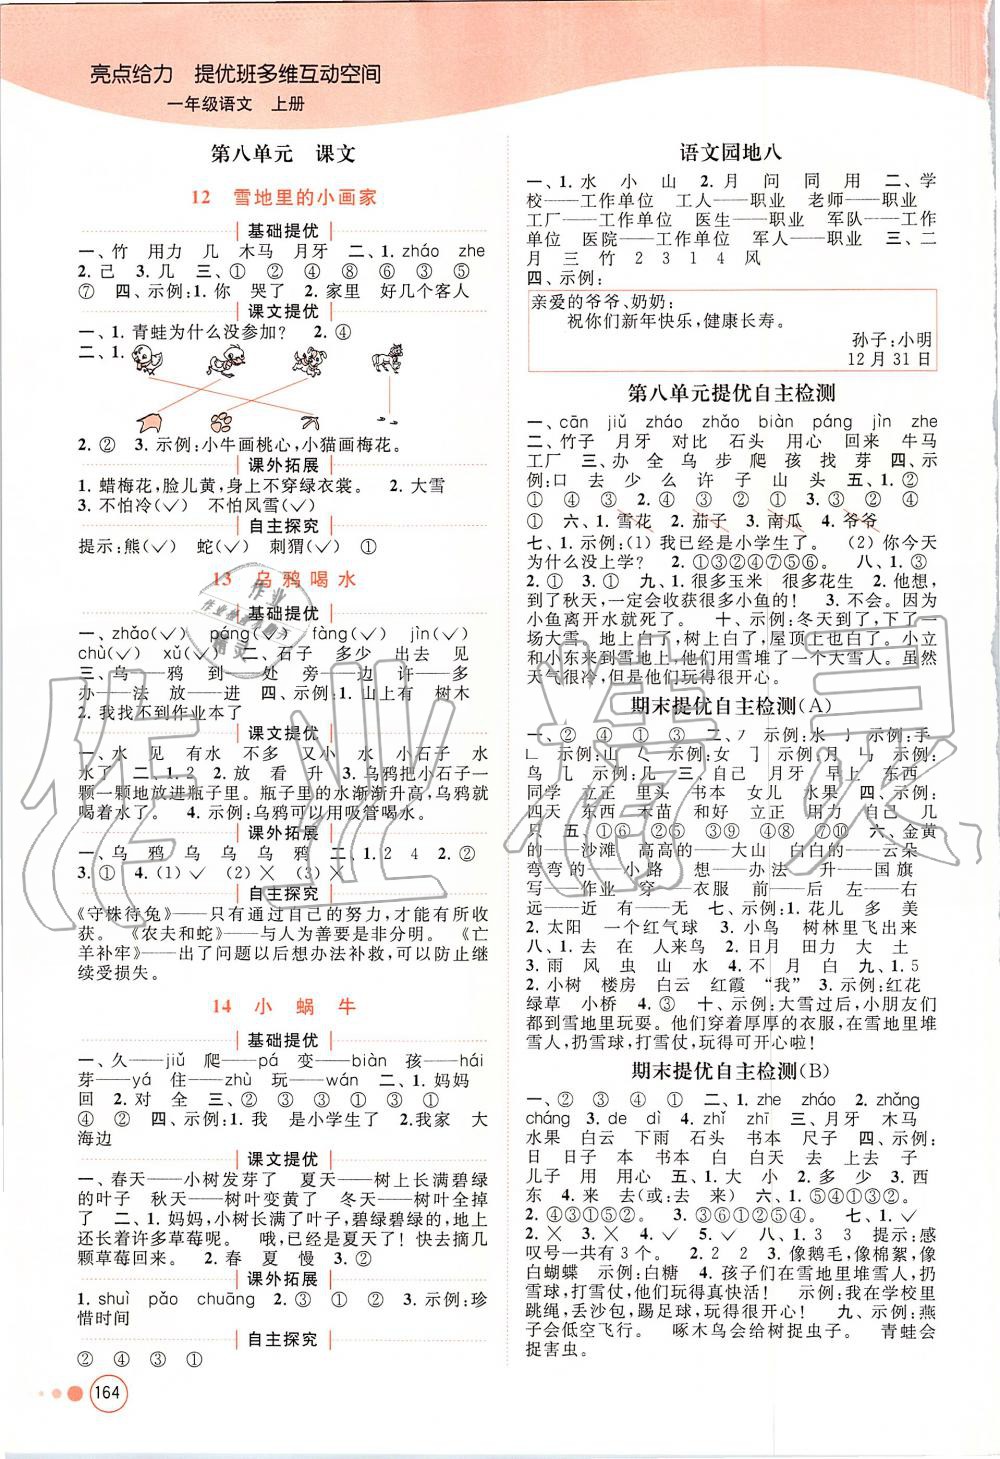 亮点给力　提优班多维互动空间
一年级语文　上册
第八单元　课文
12　雪地里的小画家
基础提优
一、竹　用力　几　木马　月牙　二、1. zháo　zhe
2. 己　3. 几　三、①　②　④　⑧　⑥　③　⑤
⑦　四、示例:1. 你　哭了　2. 家里　好几个客人
课文提优
一、1. 青蛙为什么没参加?　2. ④
二、1.
2. ②　3. 示例:小牛画桃心,小猫画梅花。
课外拓展
1. 蜡梅花,脸儿黄,身上不穿绿衣裳。　2. 大雪
3. 不怕冷(✓)　不怕风雪(✓)
自主探究
提示:熊(✓)　蛇(✓)　刺猬(✓)　①
13　乌鸦喝水
基础提优
一、zhǎo(✓)　páng(✓)　fàng(✓)　jìn(✓)
chù(✓)　xǔ(✓)　二、石子　多少　出去　见
三、乌——鸦　到——处　旁——边　许——多
办——法　放——进　四、示例:1. 山上有　树木
2. 我找不到作业本了
课文提优
一、水　见　有水　不多　又小　水　小石子　水
水了　二、1. 2　2. 放　看　升　3. 乌鸦把小石子一
颗一颗地放进瓶子里。瓶子里的水渐渐升高,乌鸦就
喝着水了。　4. 示例:乌鸦可以用吸管喝水。
课外拓展
一、乌　鸦　乌　乌　鸦　二、1. 2　4　2. ②
3. ①　4. (1) ✓　(2) ✕　(3) ✕
自主探究
《守株待兔》——只有通过自己的努力,才能有所收
获。　《农夫和蛇》——与人为善要是非分明。　《亡
羊补牢》——出了问题以后想办法补救,可以防止继
续受损失。
14　小　蜗　牛
基础提优
一、久——jiǔ　爬——pá　变——biàn　孩——hái
芽——yá　住——zhù　玩——wán　二、1. 妈妈
回　2. 对　全　三、②　③　①　③　②　①
④　②　四、示例:1. 我　是小学生了　2. 我家　大
海边
课文提优
一、春天——小树发芽了　夏天——树上长满碧绿
的叶子　秋天——树叶变黄了　冬天——树叶全掉
了　二、1. 妈妈,小树长满了叶子,碧绿碧绿的,地
上还长着许多草莓呢。　哦,已经是夏天了!快去摘几
颗草莓回来。　2. 春　夏　慢　3. ②
课外拓展
1. shuì　pǎo　chuāng　2. ③　①　②　3. 示例:珍
惜时间
自主探究
②　④　③　①
164
语文园地八
一、1. 水　小　山　2. 月　问　同　用　二、学
校——工作单位　工人——职业　老师——职业
工厂——工作单位　医生——职业　军队——工作
单位　医院——工作单位　军人——职业　三、二
月　三　竹　2　3　1　4　风
四、示例:
亲爱的爷爷、奶奶:
祝你们新年快乐,健康长寿。
孙子:小明
12月31日
第八单元提优自主检测
一、cān　jiǔ　zháo　zhǎo　biàn　páng　jìn　zhe
二、竹子　月牙　对比　石头　用心　回来　牛马
工厂　三、办　全　乌　步　爬　孩　找　芽　四、示
例:口　去　少　么　许　子　山　头　五、1. ②
①　④　③　2. ④　③　②　①　3. ②　④　③
①　六、1. 雪花　2. 茄子　3. 南瓜　4. 爷爷
七、1. 示例:(1) 我已经是小学生了。　(2) 你今天
为什么没上学?　2. ①③②⑦⑤⑥。　八、1. ③
2. ①　3. ③　九、1. 很多玉米　很多果子　2. 他想,
到了秋天,一定会收获很多小鱼的!　3. 不会。因为
小鱼离开水就死了。　十、示例:冬天到了,下了一
场大雪,地上白了,树上白了,屋顶上也白了。小立
和小东来到雪地上,他们用雪堆了一个大雪人。虽然
天气很冷,但是他们玩得很开心。
期末提优自主检测(A)
四天　东西　木苗　和好　立正　用力　自己　几
只　五、①⑥　②⑤　③⑨　④⑧　⑦⑩　六、金黄
的——沙滩　高高的——大山　白白的——云朵
弯弯的——小路　想——办法　升——国旗
写——作业　穿——衣服　前——后　左——右
远——近　有——无　七、示例:1. 花儿　多　美
2. 太阳　一个红气球　3. 小鸟　树林里飞出来
八、1. 去　在　人来鸟　2. 日月　田力　大　土
3. 雨　风　虫　山　水　4. 马　不　九、1. 5
2. 小树　楼房　白云　红霞　“我”　3. 示例:红花
绿草　小桥　4. ③　十、示例:大雪过后,小朋友们
都到雪地里玩耍。他们穿着厚厚的衣服,在雪地里堆
雪人,扔雪球,打雪仗,玩得可开心啦!
期末提优自主检测(B)
一、②　③　④　①　二、1. zhe　zháo　2. zhǎng
cháng　3. de　dì　4. zhǐ　zhī　三、月牙　木马
水果　白云　下雨　石头　书本　尺子　四、示例:
日　日子　本　书本　白　白天　去　上去　子
儿子　用　用心　五、1. 大　小　2. 多　少　3. 西
东　4. 来　去(或:去　来)　六、1. ⑤④①③②。
2. ④③①⑤②。　3. ②⑥③①⑤④。　七、1. ✓
2. ✕　3. ✕　4. ✓　5. ✓　八、1. 3　3　提示:感
叹号一共有3个。　2. 2　2　3. 像鹅毛,像棉絮,像
白蝴蝶　示例:白糖　4. 孩子们在雪地里堆雪人,扔
雪球,打雪仗,他们玩得真快活!　示例:我在学校里
跳绳,丢沙包,踢足球,玩得真开心!　九、示例:燕
子会低空飞行。　啄木鸟会给树捉虫子。　青蛙会
捉害虫。